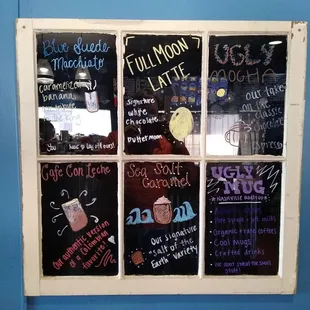 Blue Suede
Macchiato
caramelized
banana
FULL MOON
LATTE
Signature
white
chocolate...
buttermoon
UGLY
MOCHA
our take
on the
classic
chocolate
espresso
Cafe Con Leche
Our authentic
version of
a Colombian
favorite
Sea Salt
Caramel
Our signature
"Salt of the
Earth" variety
UGLY
MUG
Organic + rare coffees
Cool Mugs
Crafted drinks